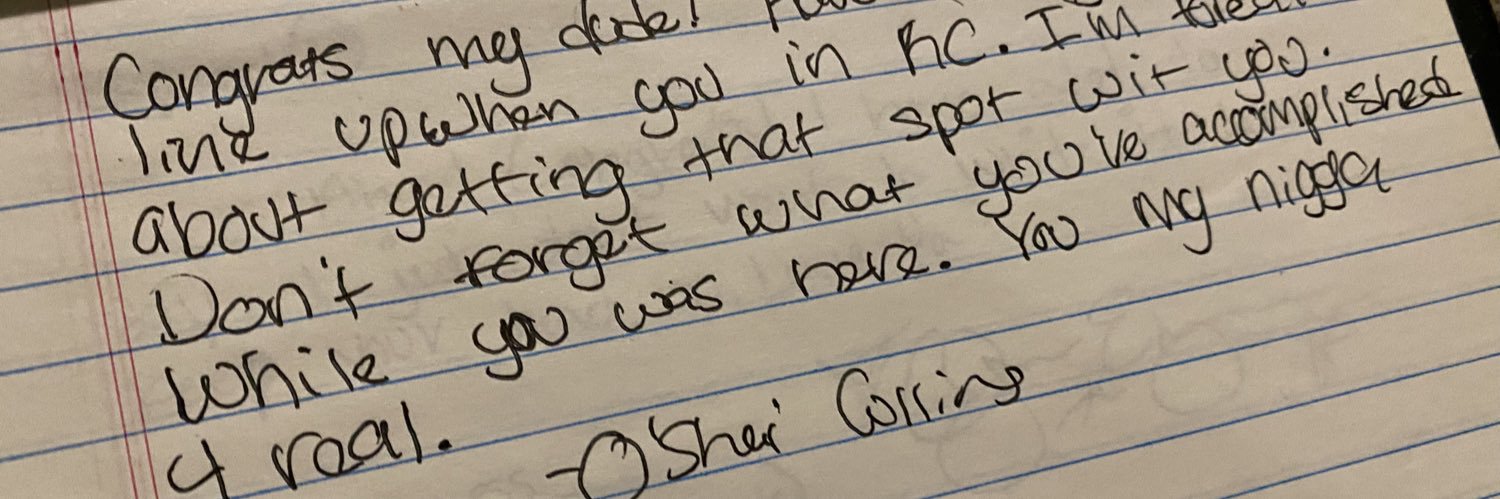 Congrats my dude!
link up when you in KC. I'm
about getting that spot wit you.
Don't forget what you've accomplished
while you was here. You my nigga
4 real.
-O'Shei Collins